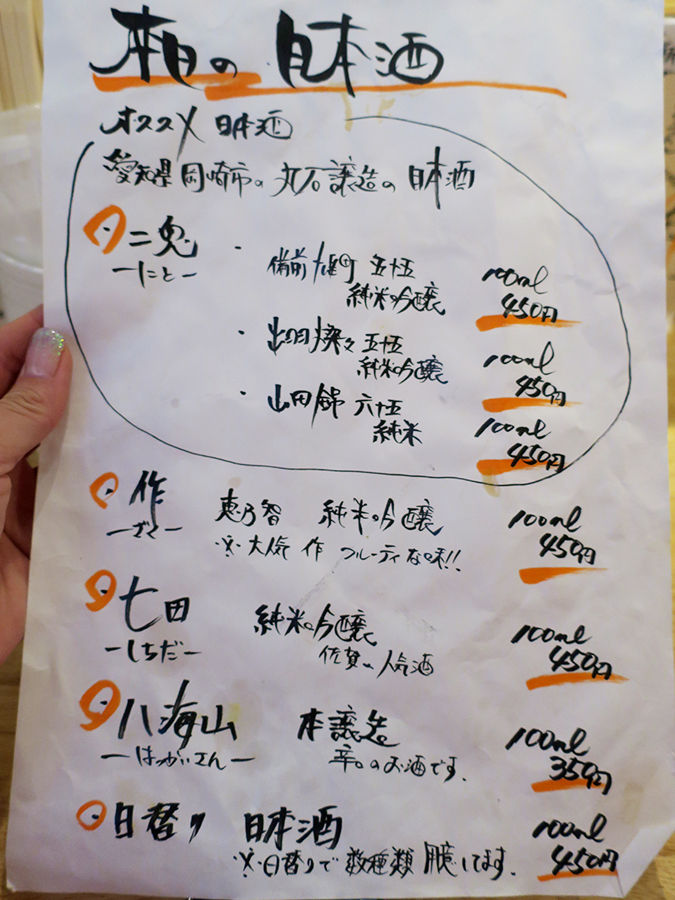 本日の 日本酒
オススメ 日本酒
愛知県 岡崎市の 丸石醸造の 日本酒
二兎
ーにとー
・備前雄町 五十五
純米吟醸
100ml
450円
・出羽燦々 五十五
純米吟醸
100ml
450円
・山田錦 六十五
純米
100ml
450円
作 恵乃智 純米吟醸
ーざくー ※大人気 作 フルーティな味!!
100ml
450円
七田 純米吟醸
ーしちだー 佐賀の人気酒
100ml
450円
八海山 本醸造
ーはっかいさんー 辛口のお酒です.
100ml
350円
日替り 日本酒
※日替りで数種類 用意してます.
100ml
450円